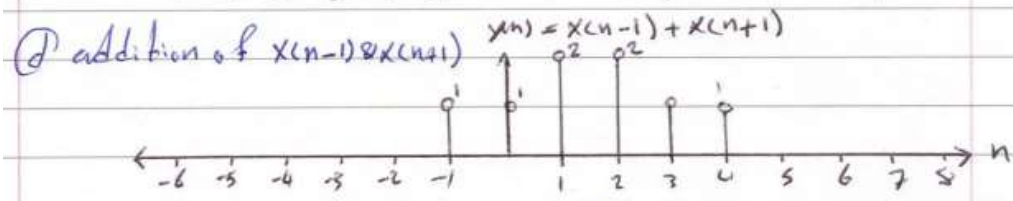 (d) addition of x(n-1) & x(n+1)
y(n) = x(n-1) + x(n+1)
1 1 2 2 1
n
-6 -5 -4 -3 -2 -1 1 2 3 4 5 6 7 8